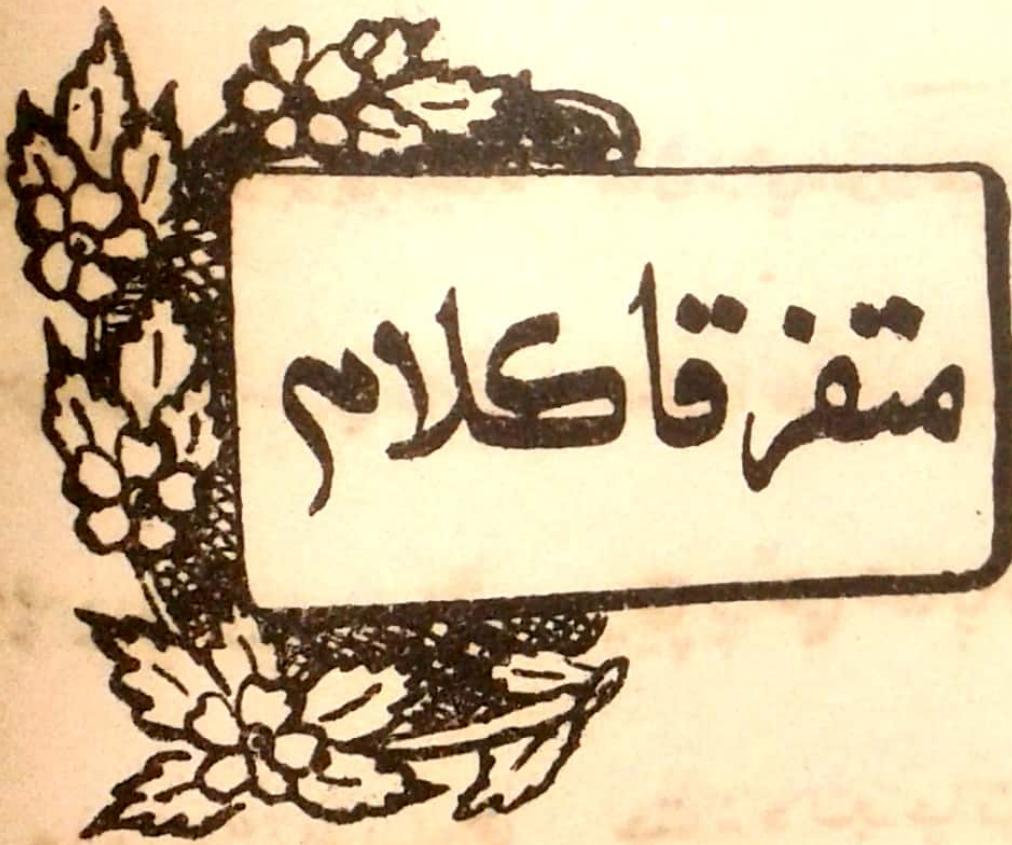 متفرقا کلام